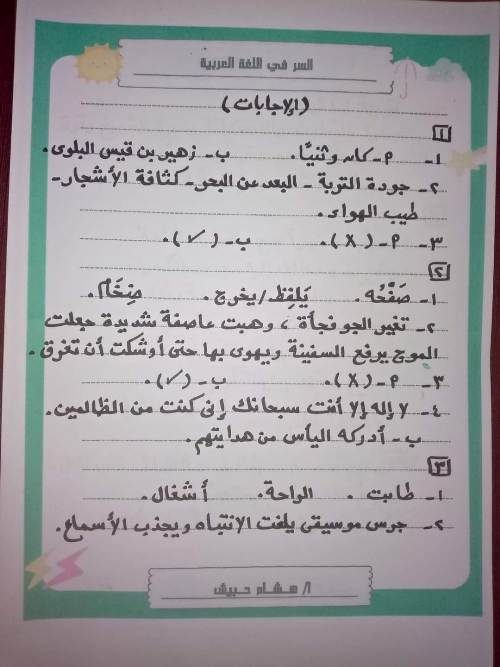 السر في اللغة العربية
(الإجابات)
١
١- أ- كان وثنيًا. ب- زهير بن قيس البلوى.
٢- جودة التربة - البعد عن البحر - كثافة الأشجار -
طيب الهواء.
٣- أ- (X). ب- (✓).
٢
١- صَفْحُه. يَلفِظ/يخرج. ضِخَام.
٢- تغير الجو فجأة، وهبت عاصفة شديدة جعلت
الموج يرفع السفينة ويهوى بها حتى أوشكت أن تغرق.
٣- أ- (X). ب- (✓).
٤- لا إله إلا أنت سبحانك إنى كنت من الظالمين.
ب- أدركه اليأس من هدايتهم.
٣
١- طابت. الراحة. أشغال.
٢- جرس موسيقى يلفت الانتباه ويجذب الأسماع.
أ/ هشام حبيش